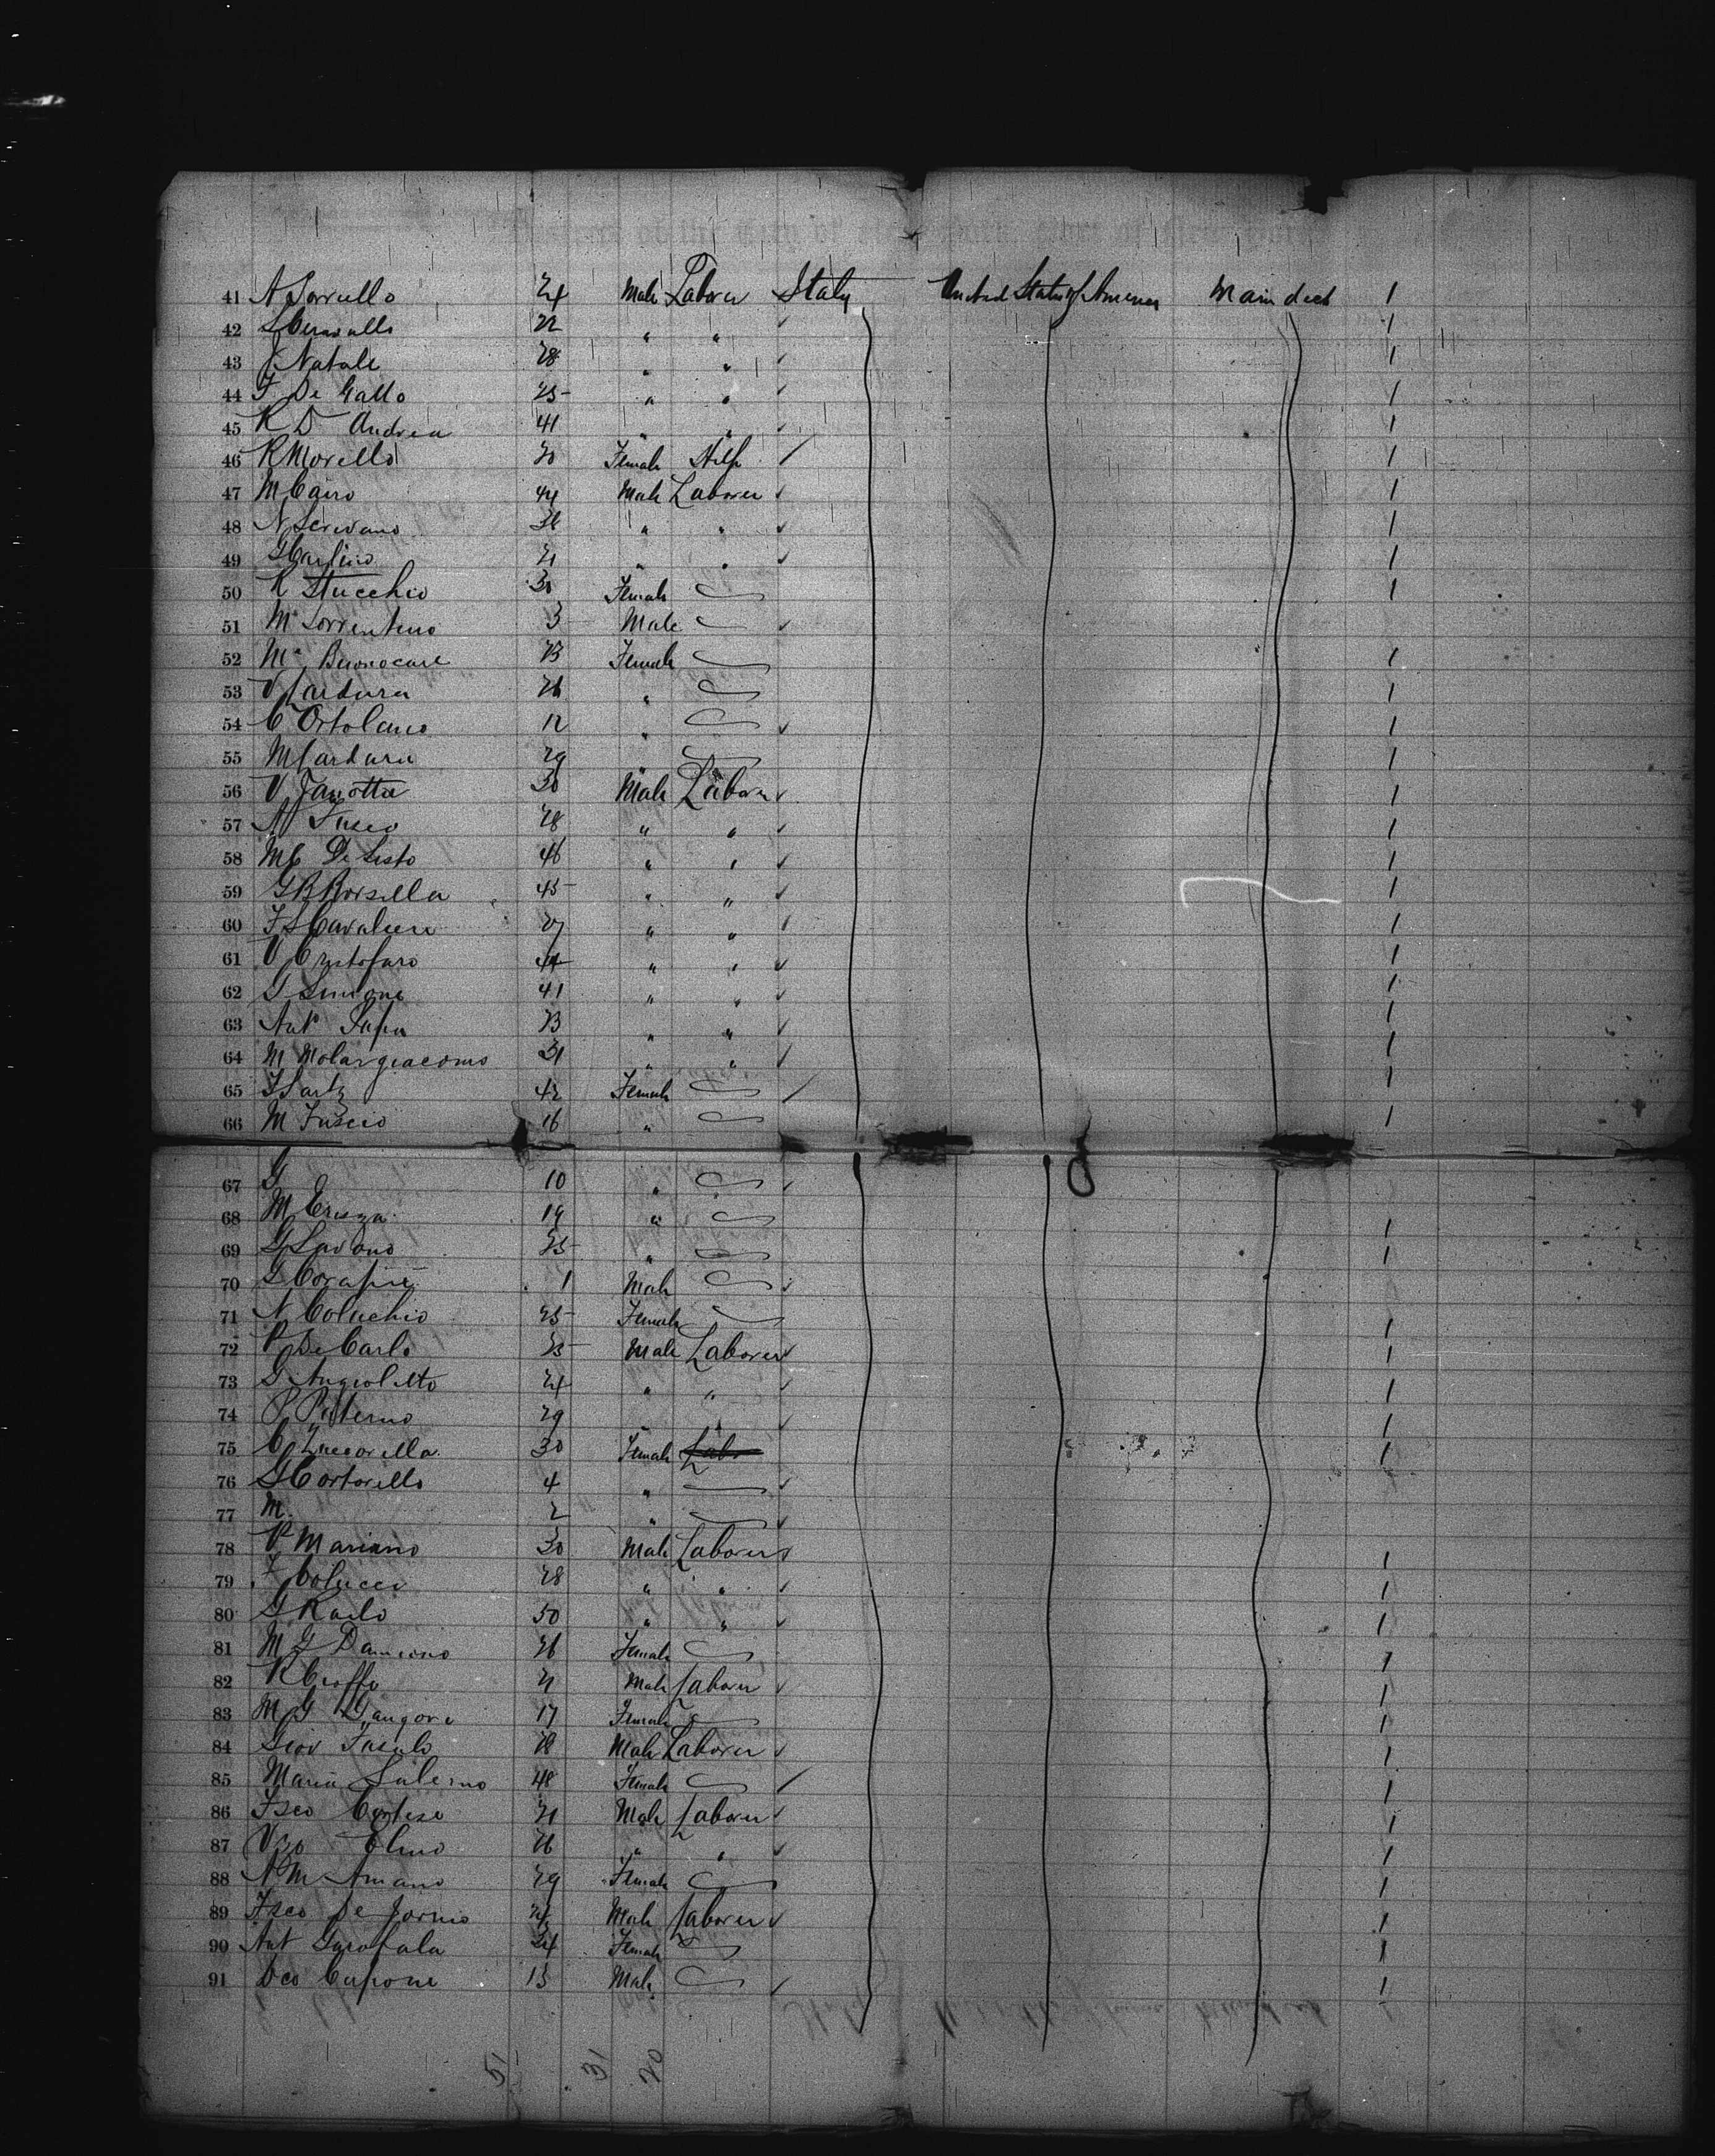 41 N Sorrullo 24 Male Laborer Italy United States of America Main deck 1
42 22 " " 1
43 Natale 28 " " 1
44 F De Gallo 25 " " 1
45 R D Andrea 41 " " 1
46 R Morello 20 Female Help 1
47 M Cairo 44 Male Laborer 1
48 N Scrivano 36 " " 1
49 G Carlino 21 " " 1
50 R Stucchio 30 Female 1
51 M Sorrentino 3 Male
52 Ma Buonocare 23 Female 1
53 V Cardura 26 " 1
54 C Ortolano 12 " 1
55 M Cardura 29 " 1
56 V Janotta 30 Male Laborer 1
57 N Fusco 28 " " 1
58 M C De Sisto 46 " " 1
59 G B Borsella 45 " " 1
60 F S Cavalieri 27 " " 1
61 V Cristofaro 44 " " 1
62 G Simone 41 " " 1
63 Ant Papa 23 " " 1
64 M Molargiacomo 31 " " 1
65 42 Female 1
66 M Fuscio 16 " 1
67 G 10 "
68 M 19 " 1
69 G Savono 25 " 1
70 G Corapie 1 Male
71 N Coluchio 25 Female 1
72 P De Carlo 25 Male Laborer 1
73 G Angioletto 24 " " 1
74 P Paterno 29 " " 1
75 C Zuccorella 30 Female Labo 1
76 G Cortorello 4 "
77 M 2 "
78 V Mariano 30 Male Laborer 1
79 F Colucci 28 " " 1
80 G Carlo 50 " " 1
81 M G Damiano 26 Female 1
82 R Cioffo 21 Male Laborer 1
83 M G 17 Female 1
84 Giov Fasulo 28 Male Laborer 1
85 Maria Salerno 48 Female 1
86 Fsco Cortese 21 Male Laborer 1
87 Vzo Elmo 26 " " 1
88 N M Amano 29 Female 1
89 Fsco De Jornio 24 Male Laborer 1
90 Ant Garofala 24 Female 1
91 Dco Capone 13 Male 1
51 31 20